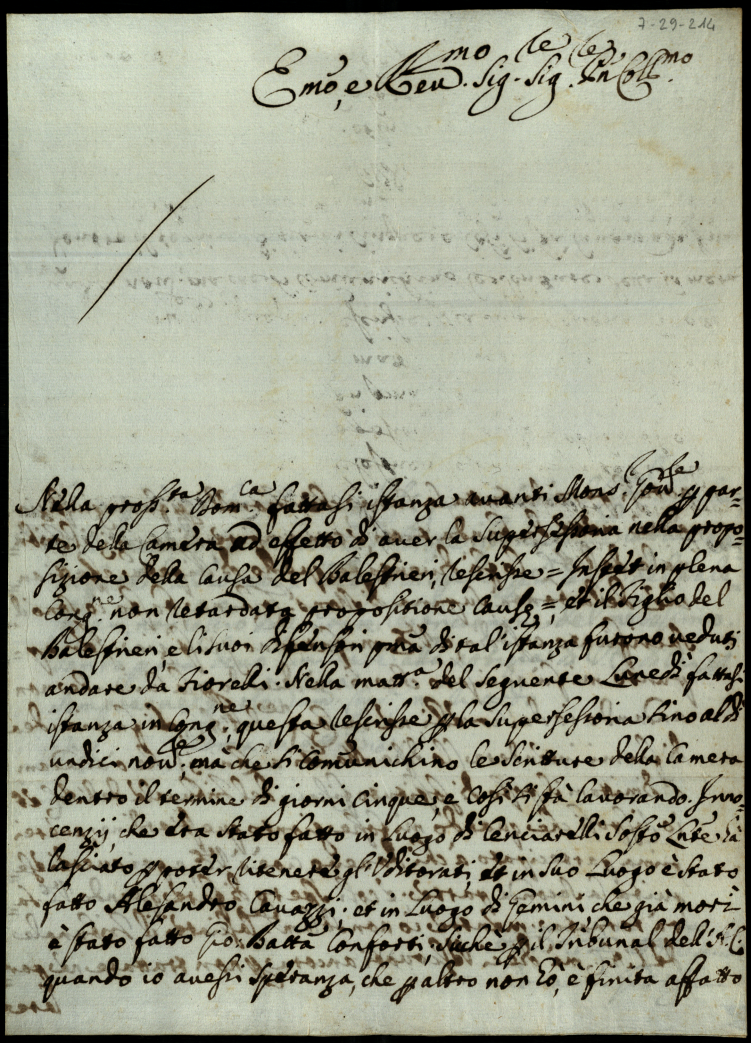 7-29-214
Emo, e Reumo. Sigre. Sigre. Pn Collmo.
Nella pross.ta Dom.ca fattasi istanza auanti Mons. Gou.re p par-
te della Camera ad effetto di auer la Supersessoria nella propo-
sizione della Causa del Balestrieri, rescrisse = in plena
Cong.ne non retardata propositione Causę =, et il Figlio del
Balestrieri, e li suoi difensori pma di tal istanza furono ueduti
andare da Fiorelli. Nella matt.a del seguente Lunedì fattasi
istanza in Cong.ne, questa rescrisse p la supersessoria sino al dì
undici nou.e, mà che si comunichino le scritture della Camera
dentro il termine di giorni cinque, e così si stà lavorando. Inno-
cenzij, che era stato fatto in luogo di Lenciarelli Sosto. Lnte. hà
lasciato p poter ritenere gl'Uditorati, et in suo Luogo è stato
fatto Alesandro Cauazzi. et in Luogo di Gemini, che già morì
è stato fatto Gio: Batta Conforti, siche p il Tribunal dell'A.C.
quando io auessi speranza, che p altro non hò, è finita affatto